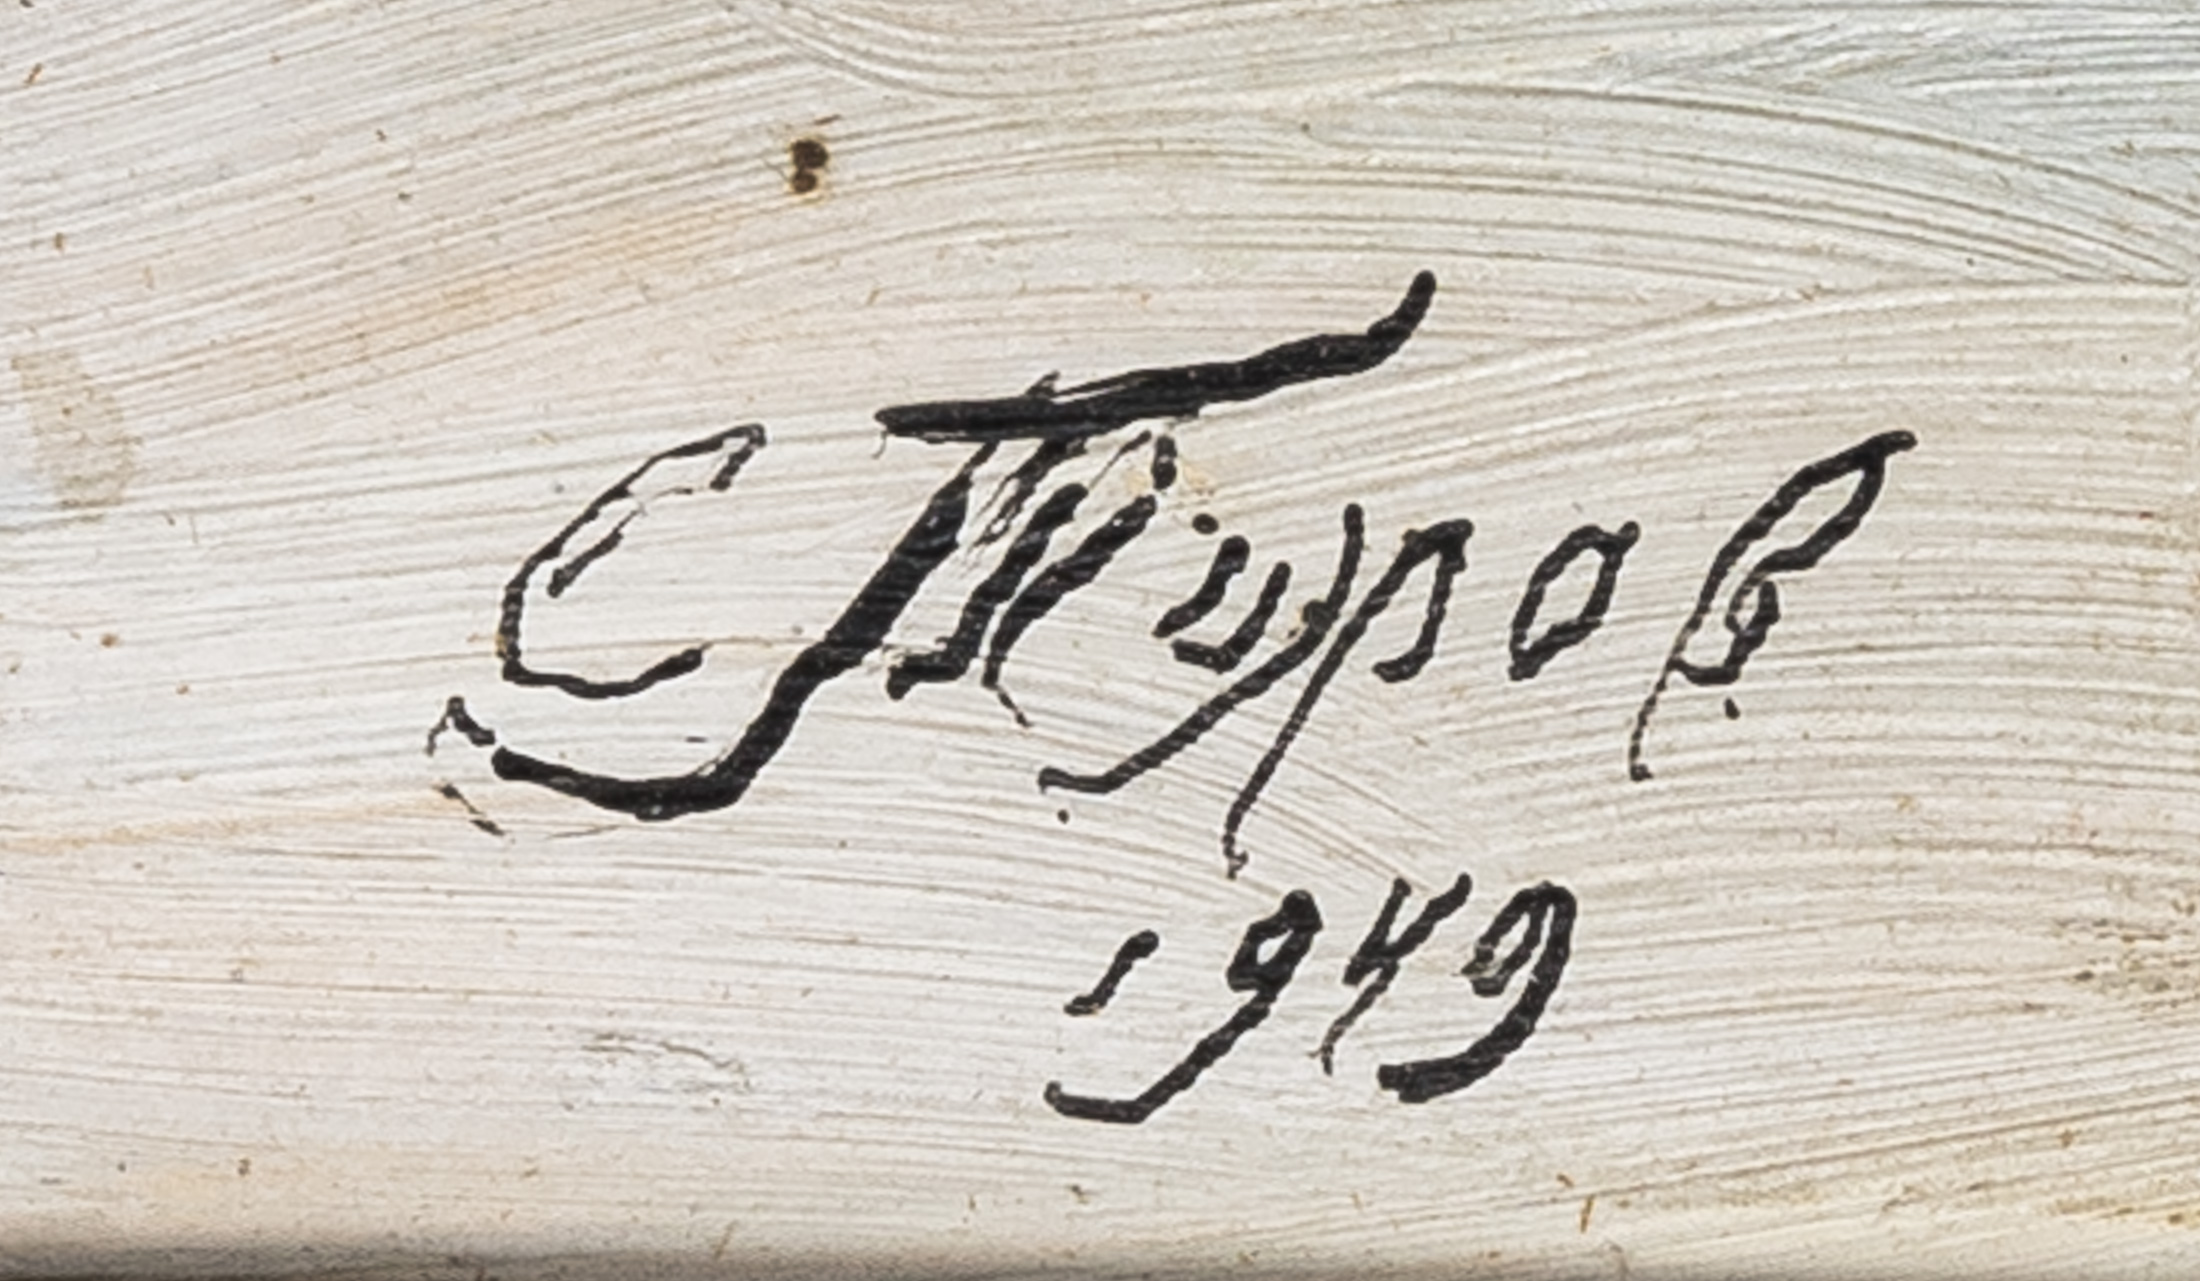 С Туров
1949